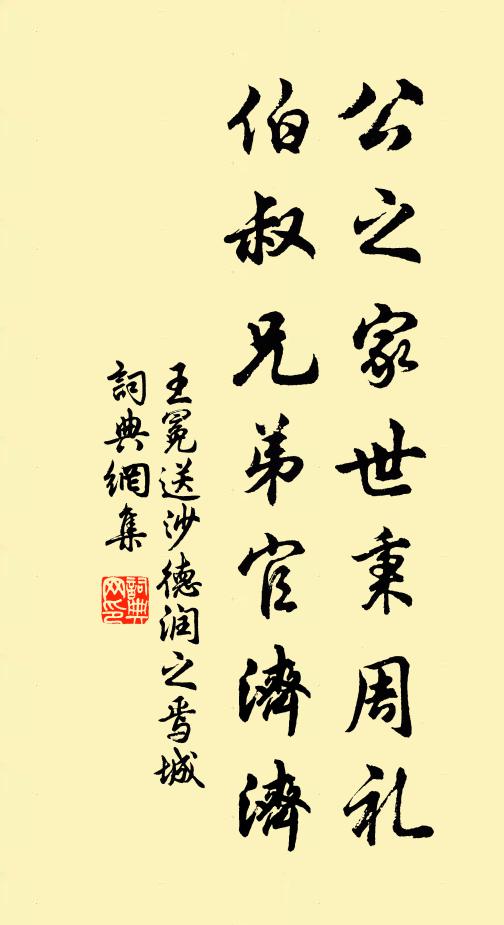 公之家世秉周礼
伯叔兄弟官濟濟
王冕送沙德润之焉城
詞典網集